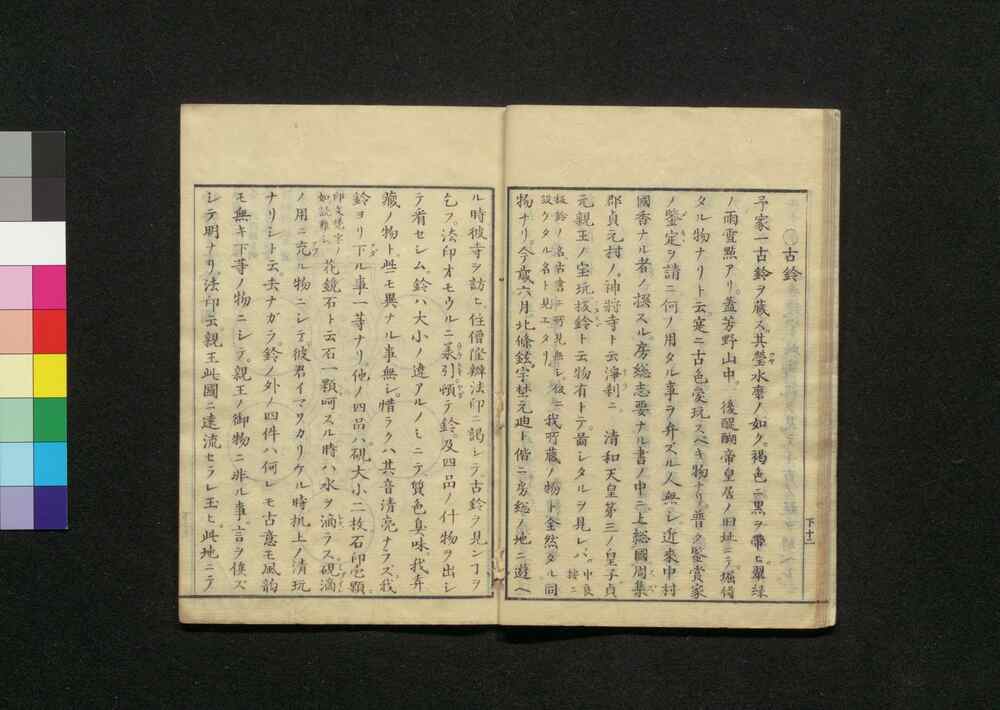 古鈴
予家一古鈴ヲ蔵ス其瑩水磨ノ如ク褐色ニ黒ヲ帯ヒ翠緑
ノ雨雪點アリ蓋芳野山中後醍醐帝皇居ノ旧址ニテ堀得
タル物ナリト云寔ニ古色愛玩スベキ物ナリ普ク鑒賞家
ノ鑒定ヲ請ニ何ノ用タル事ヲ弁ズル人無シ近來中村
國香ナル者ノ撰スル房総志要ナル書ノ中ニ上総國周集
郡貞元村ノ神將寺ト云浄刹ニ清和天皇第三ノ皇子貞
元親王ノ宝玩抜鈴ト云物有トテ圖シタルヲ見レバ中良按ニ
抜鈴ノ名古書ニ所見無シ仮ニ設ケタル名ト見エタリ我所蔵ノ物ト全然タル同
物ナリ今歳六月北條鉉字埜元廸ト偕ニ房総ノ地ニ遊ヘ
下十一
ル時彼寺ヲ訪ヒ住僧隆辨法印ニ謁シテ古鈴ヲ見ンヿヲ
乞フ法印オモウルニ案引頓テ鈴及四品ノ什物ヲ出シ
テ看セシム鈴ハ大小ノ違アルノミニテ質色臭味我弆
藏ノ物ト些モ異ナル事無シ惜ラクハ其音清亮ナラズ我
鈴ヨリ下ル事一等ナリ他ノ四品ハ硯大小二枚石印壱顆
印文幾字ノ如読難シ花鏡石ト云石一顆呵スル時ハ水ヲ滴ラス硯滴
ノ用ニ充ル物ニシテ彼君イマソカリケル時机上ノ清玩
ナリシト云去ナガラ鈴ノ外ノ四件ハ何レモ古意モ風韵
モ無キ下等ノ物ニシテ親王ノ御物ニ非ル事言ヲ俟ズ
シテ明ナリ法印云親王此國ニ遠流セラレ玉ヒ此地ニテ